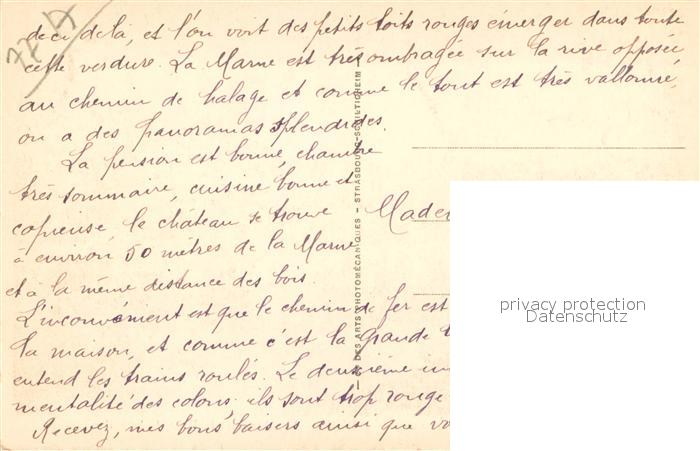 deci delà, et l'on voit des petits toits rouges émerger dans toute
cette verdure. La Marne est très ombragée sur la rive opposée
au chemin de halage et comme le tout est très vallonné,
on a des panoramas splendides.
La pension est bonne, chambre
très sommaire, cuisine bonne et
copieuse le château se trouve
à environ 50 mètres de la Marne
et à la même distance des bois.
L'inconvénient est que le chemin de fer est
la maison, et comme c'est la grande
entend les trains roulés. Le deuxième
mentalité des colons, ils sont trop rouge
Recevez, mes bons baisers ainsi que
Made
DES ARTS PHOTOMÉCANIQUES - STRASBOURG-SCHILTIGHEIM
privacy protection
Datenschutz